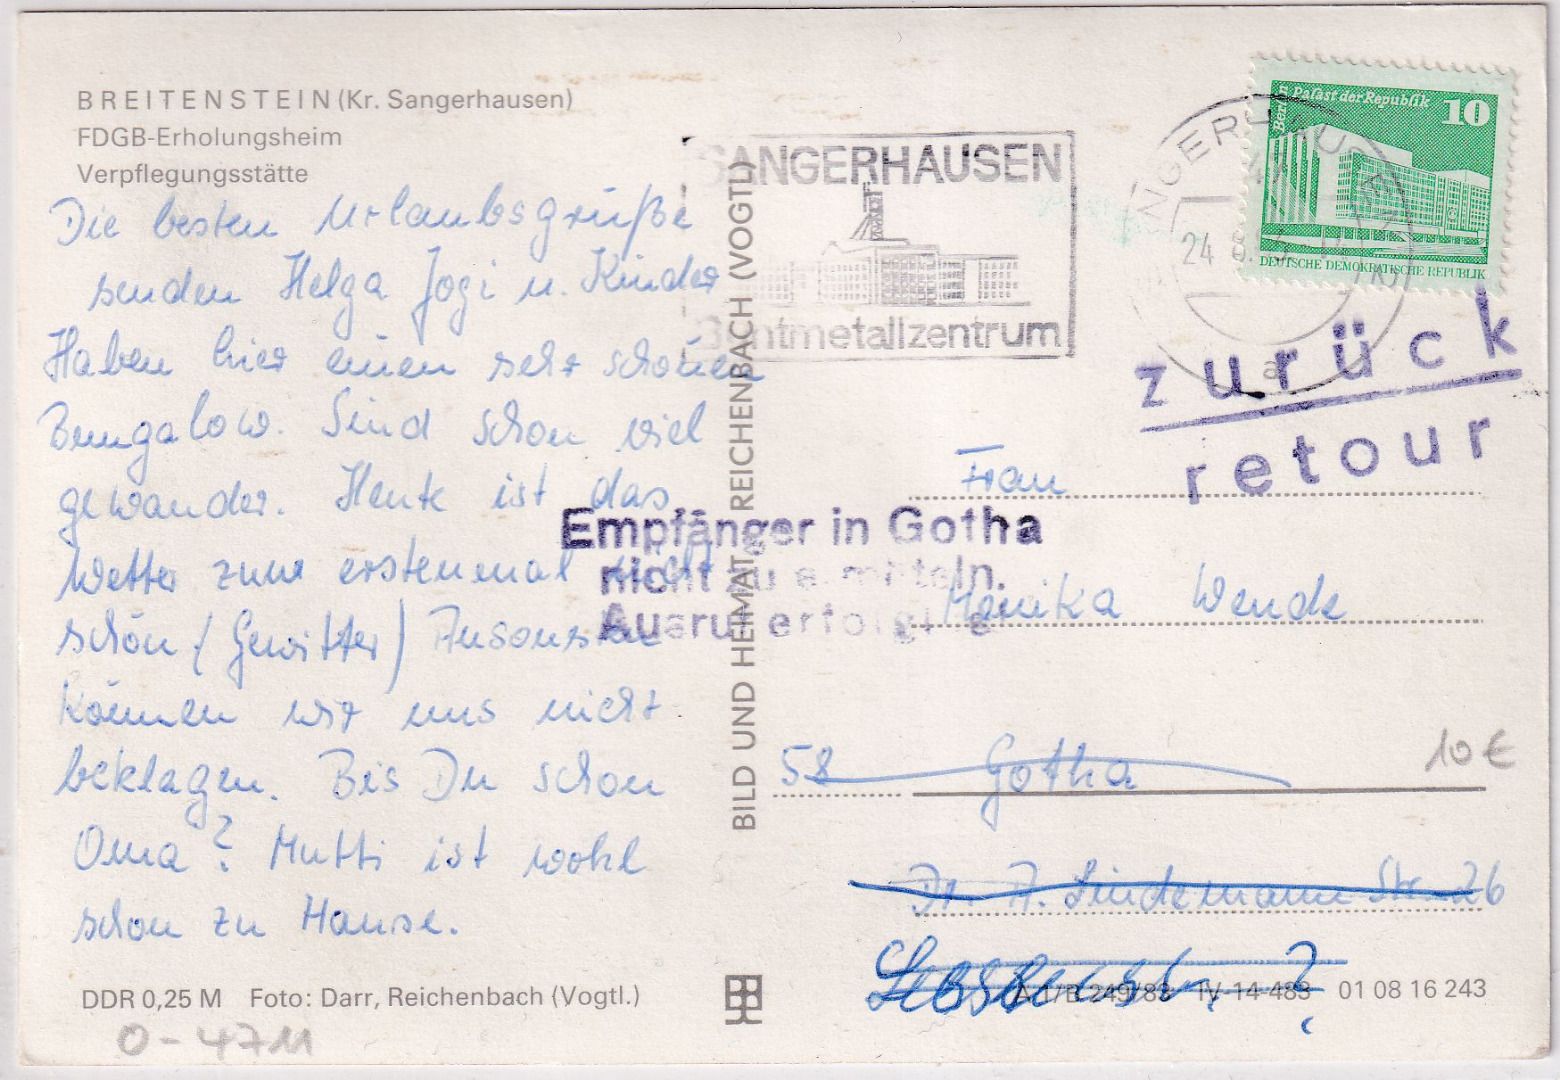 BREITENSTEIN (Kr. Sangerhausen)
FDGB-Erholungsheim
Verpflegungsstätte
Die besten Urlaubsgrüße
senden Helga Jogi u. Kinder
Haben hier einen sehr schönen
Bungalow. Sind schon viel
gewander. Heute ist das
Wetter zum erstenmal nicht
schön (Gewitter) Ansonsten
können wir uns nicht
beklagen. Bis Du schon
Oma? Mutti ist wohl
schon zu Hause.
DDR 0,25 M Foto: Darr, Reichenbach (Vogtl.)
0-4711
BILD UND HEIMAT REICHENBACH (VOGTL)
SANGERHAUSEN
Buntmetallzentrum
SANGERHAUSEN
24
a
Berlin, Palast der Republik
10
DEUTSCHE DEMOKRATISCHE REPUBLIK
zurück
retour
Empfänger in Gotha
nicht zu ermitteln.
Ausruf erfolgt
Frau
Monika Wende
58 Gotha
10 €
Dr. A. Lindemann Str. 26
A 1/B 249/83 IV-14-483 01 08 16 243